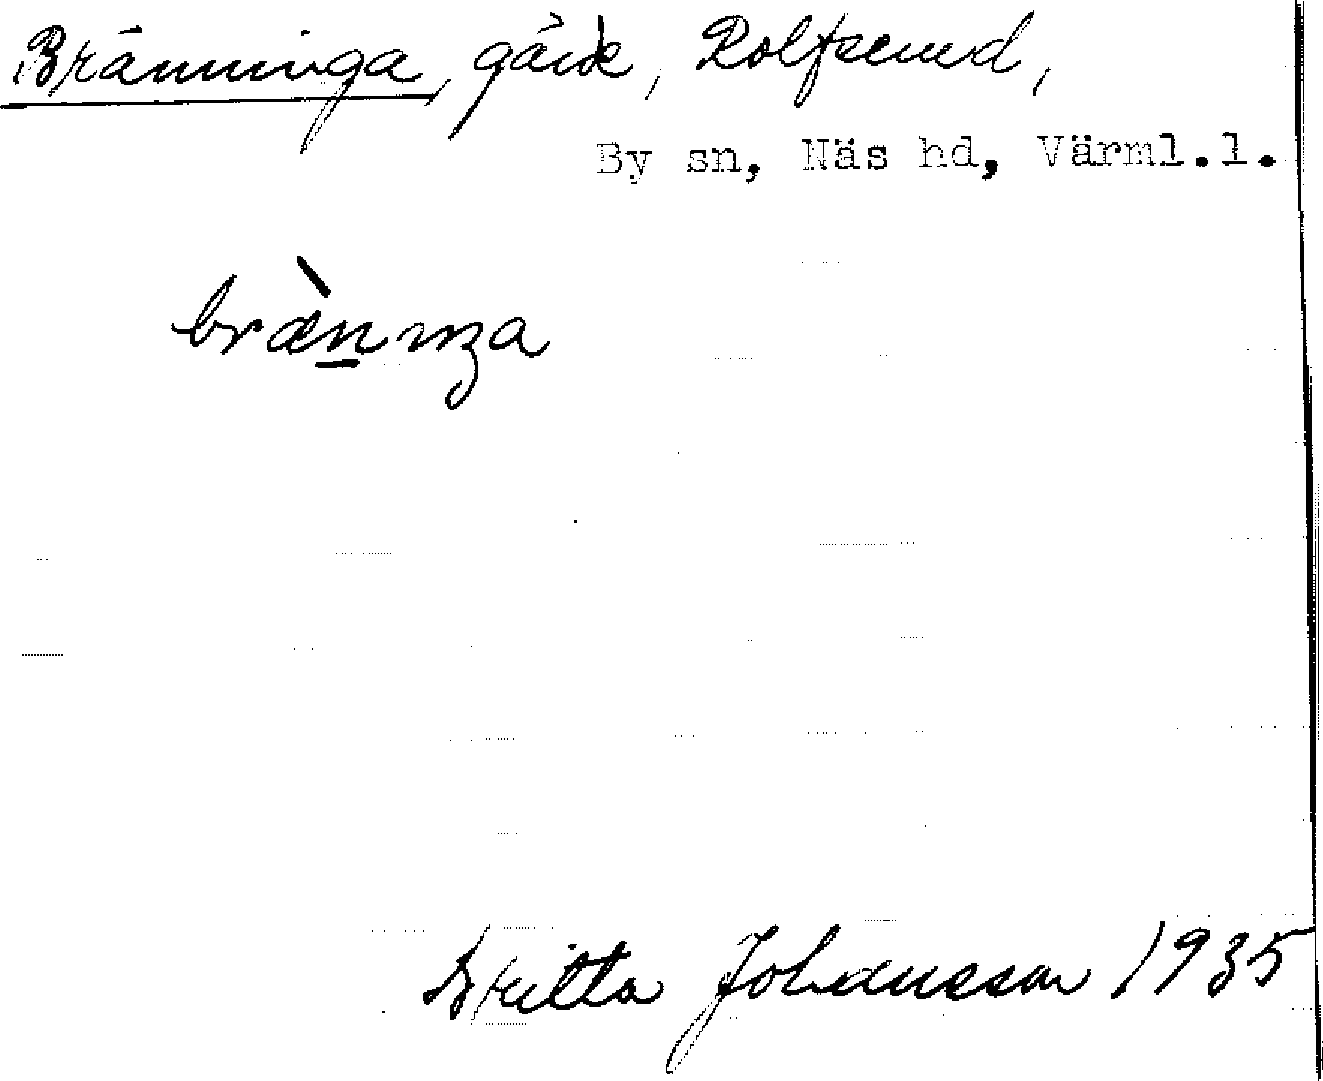 Bränninga, gård, Rolfserud,
By sn, Näs hd, Värml.l.
Britta Johansson 1935